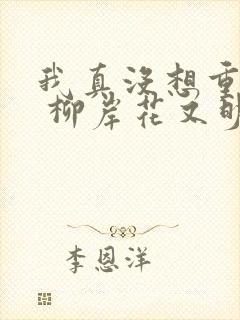 我真没想重
柳岸花又明
李恩洋